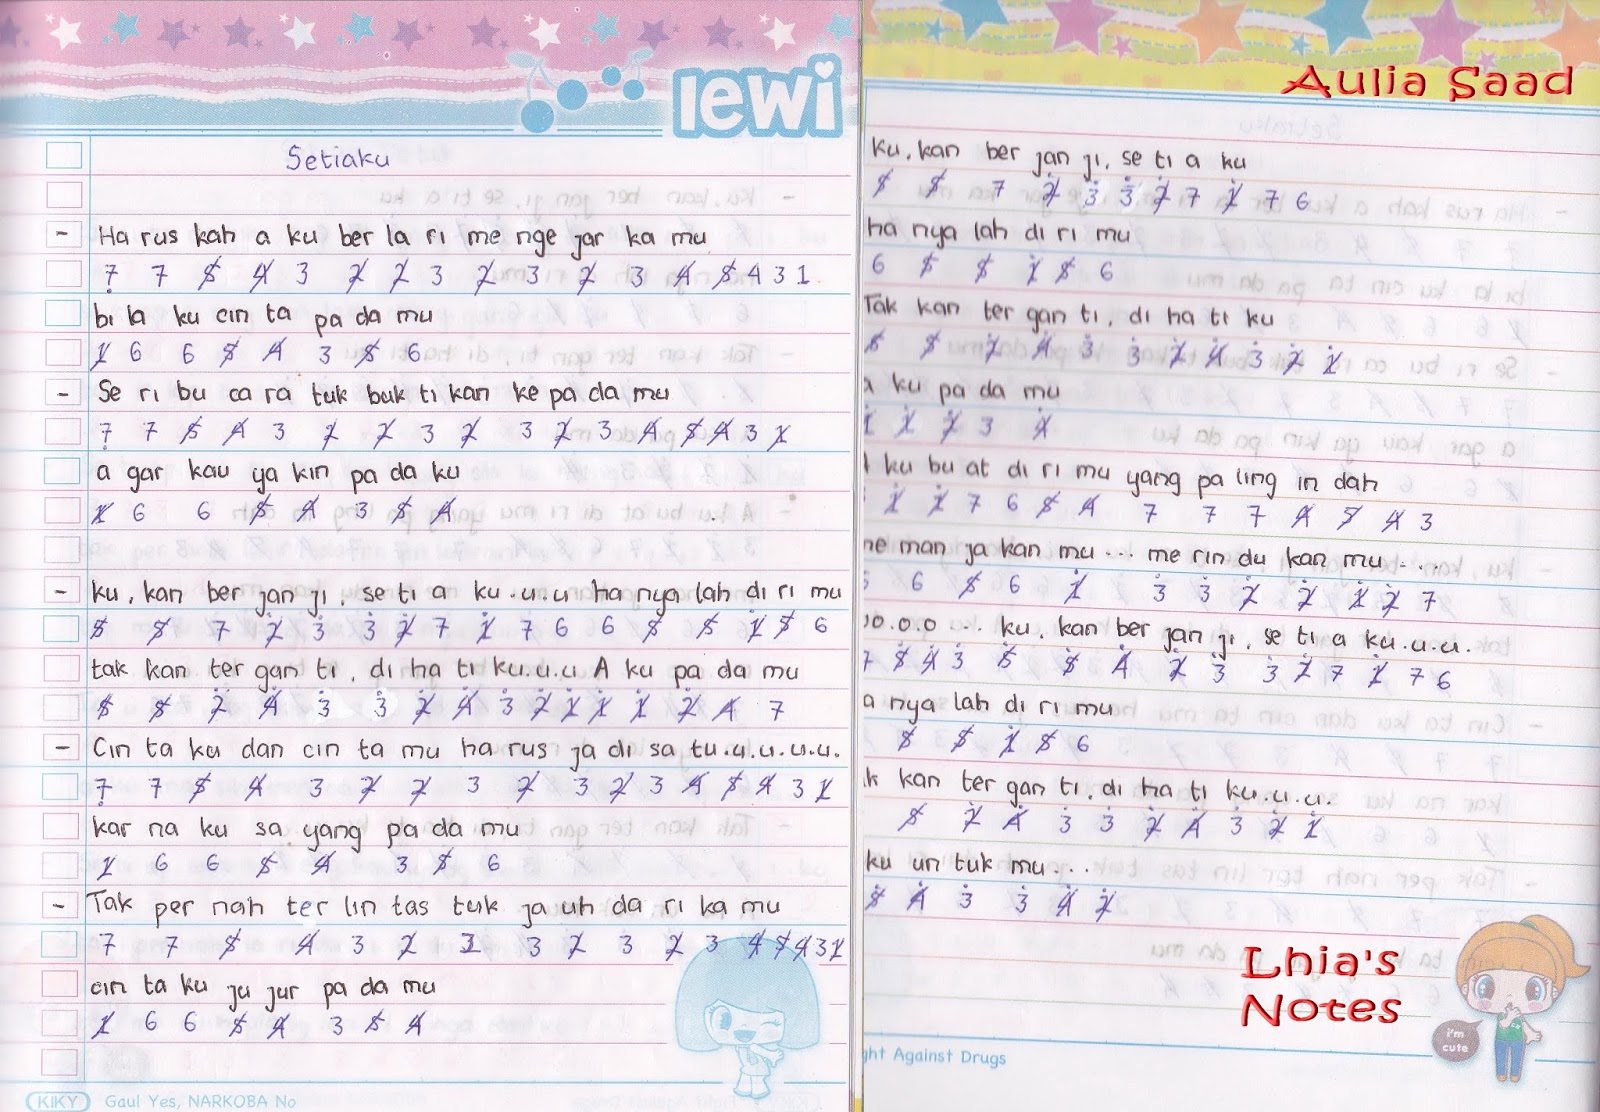 lewi
Setiaku
- Ha rus kah a ku ber la ri me nge jar ka mu
7 7 5 4 3 2 2 3 2 3 2 3 4 5 4 3 1
bi la ku cin ta pa da mu
1 6 6 5 4 3 5 6
- Se ri bu ca ra tuk buk ti kan ke pa da mu
7 7 5 4 3 2 2 3 2 3 2 3 4 5 4 3 1
a gar kau ya kin pa da ku
1 6 6 5 4 3 5 4
- ku, kan ber jan ji, se ti a ku.u.u ha nya lah di ri mu
5 5 7 2 3 3 2 7 1 7 6 6 5 5 1 5 6
tak kan ter gan ti, di ha ti ku.u.u A ku pa da mu
5 5 2 4 3 3 2 4 3 2 1 1 1 2 4 7
- Cin ta ku dan cin ta mu ha rus ja di sa tu.u.u.u.u.
7 7 5 4 3 2 2 3 2 3 2 3 4 5 4 3 1
kar na ku sa yang pa da mu
1 6 6 5 4 3 5 6
- Tak per nah ter lin tas tuk ja uh da ri ka mu
7 7 5 4 3 2 2 3 2 3 2 3 4 5 4 3 1
cin ta ku ju jur pa da mu
1 6 6 5 4 3 5 4
KIKY Gaul Yes, NARKOBA No
Aulia Saad
ku, kan ber jan ji, se ti a ku
5 5 7 2 3 3 2 7 1 7 6
ha nya lah di ri mu
6 5 5 1 5 6
Tak kan ter gan ti, di ha ti ku
5 5 2 4 3 3 2 4 3 2 1
a ku pa da mu
1 2 3 4
ku bu at di ri mu yang pa ling in dah
1 1 7 6 5 4 7 7 7 4 5 4 3
me man ja kan mu ... me rin du kan mu ...
6 5 6 1 3 3 2 2 1 2 7
o.o.o ... ku, kan ber jan ji, se ti a ku.u.u.
7 5 4 3 5 5 4 2 3 3 2 7 1 7 6
a nya lah di ri mu
5 5 1 5 6
k kan ter gan ti, di ha ti ku.u.u.
5 2 4 3 3 2 4 3 2 1
ku un tuk mu ...
5 4 3 3 4 2
Lhia's
Notes
i'm
cute
ght Against Drugs